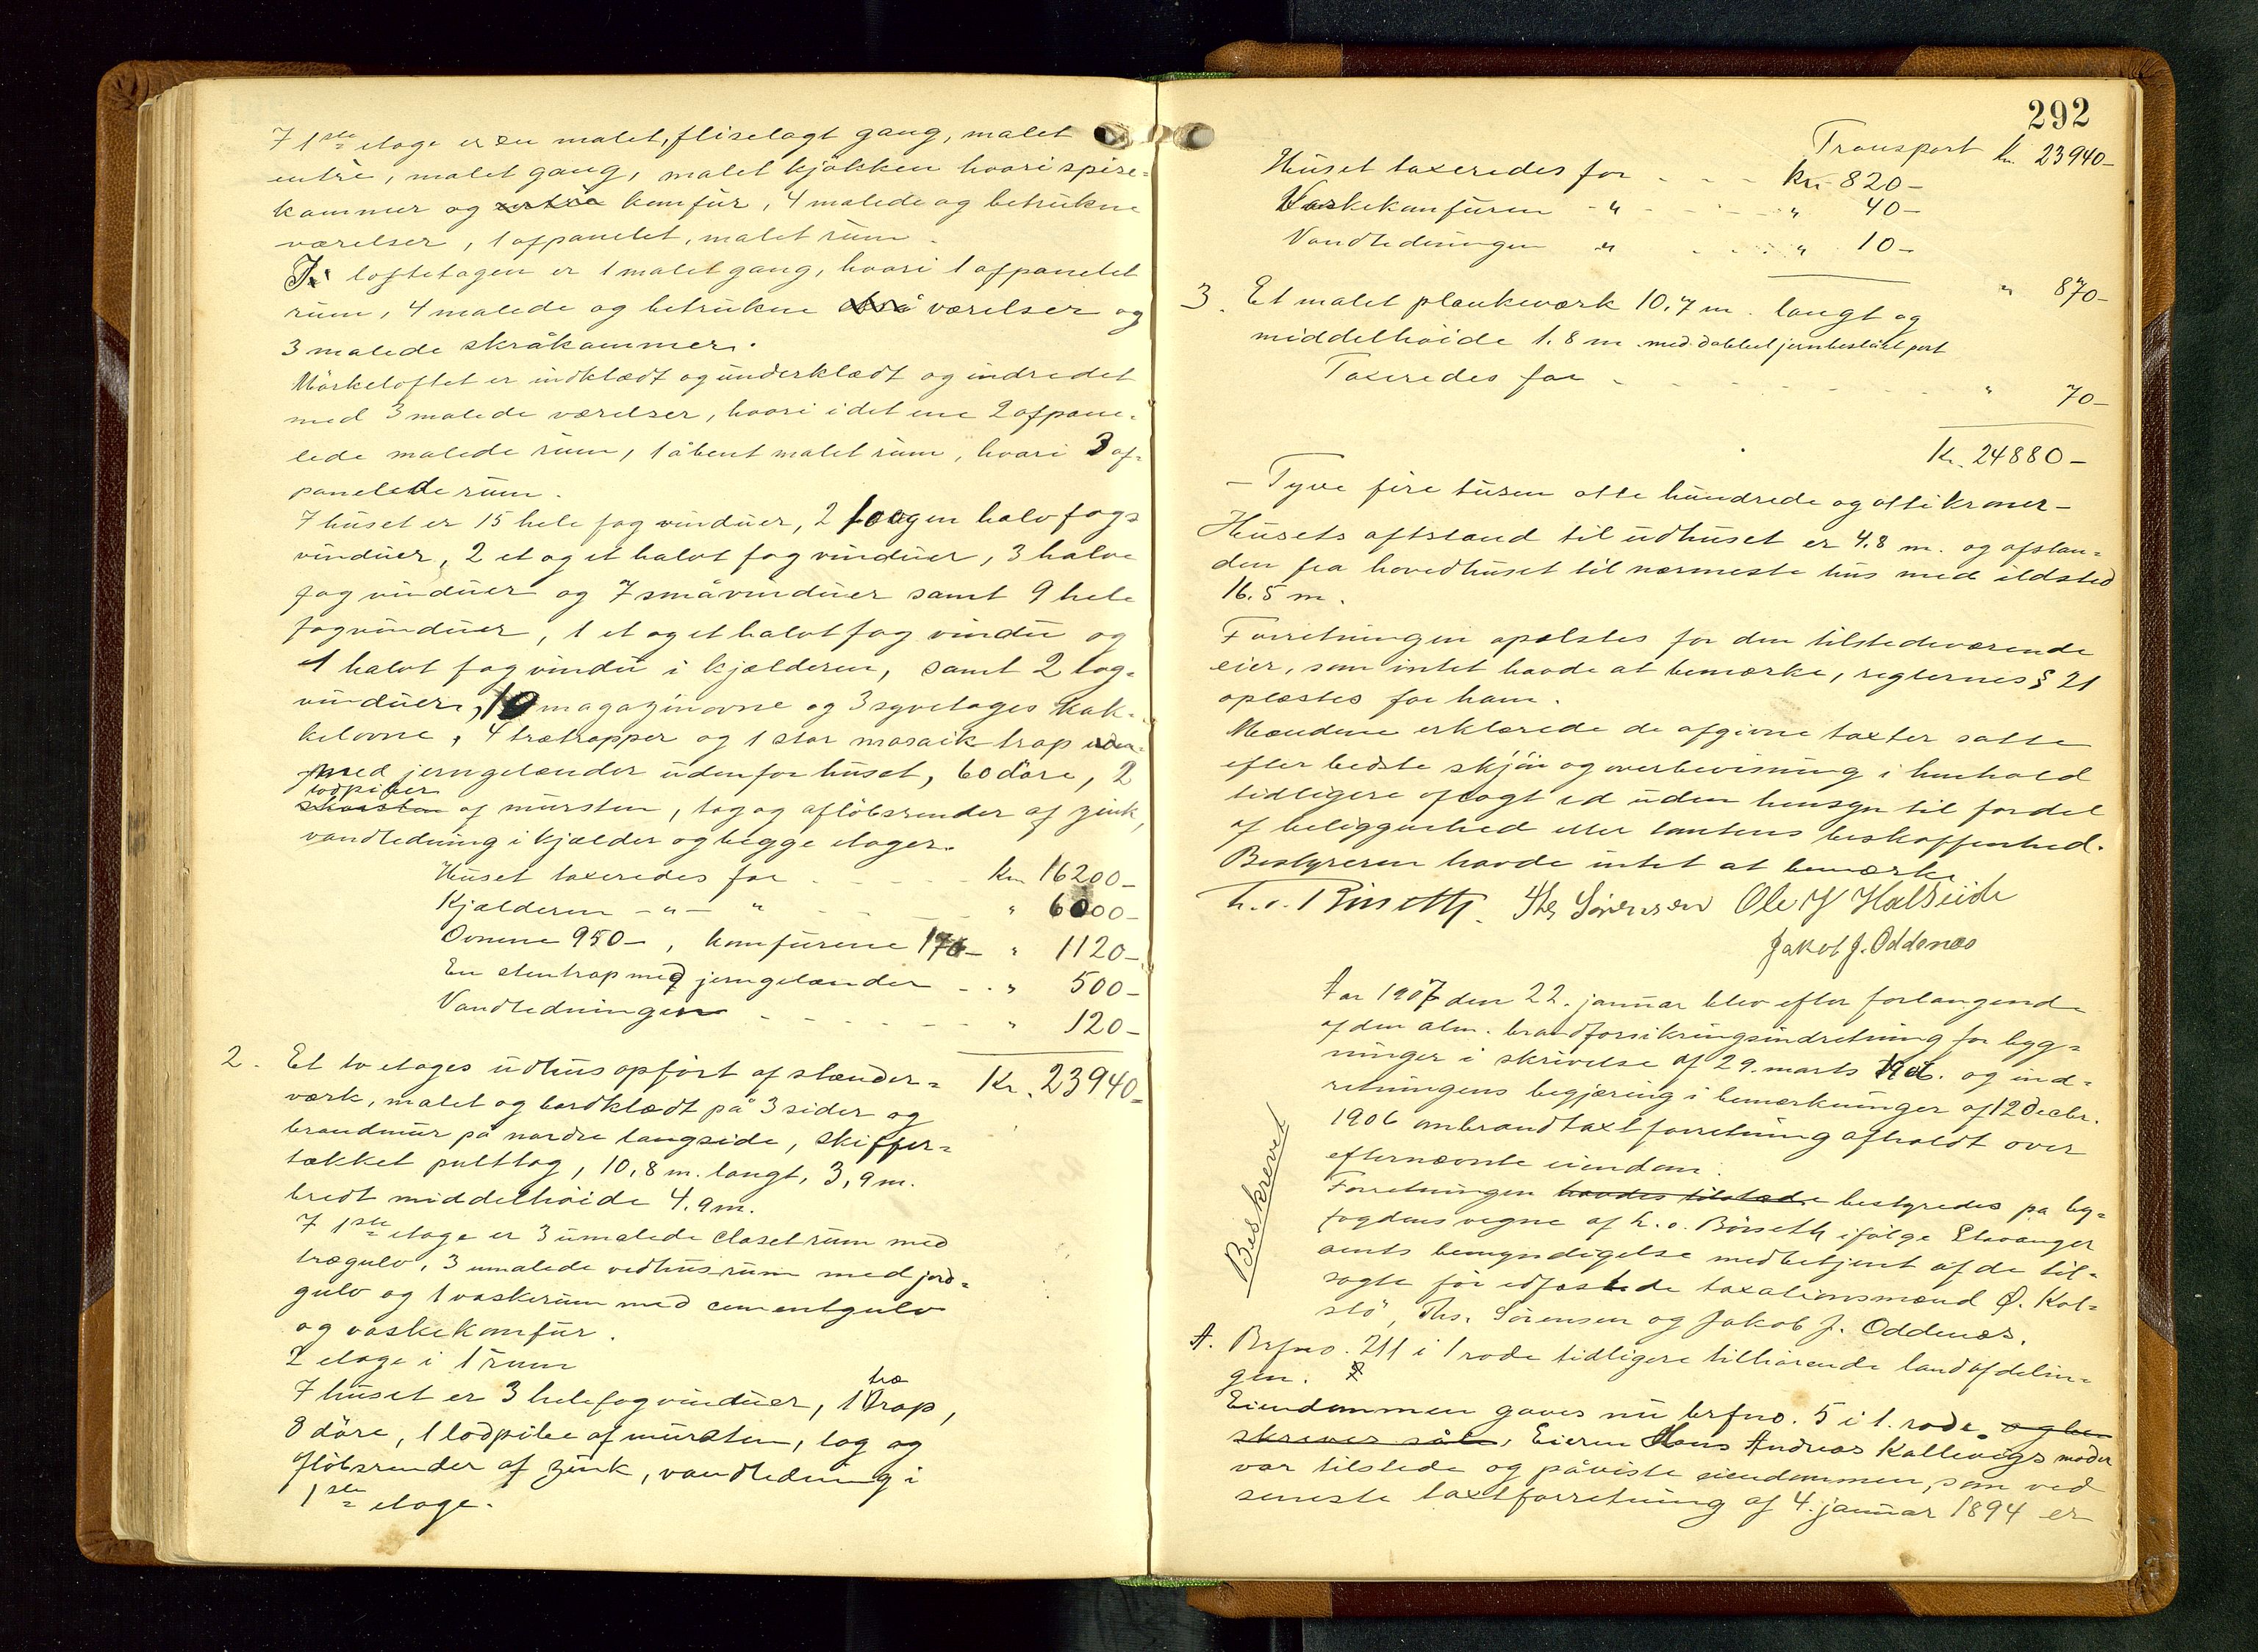 I 1ste etage er en malet, fliselagt gang, malet
entrè, malet gang, malet kjökken hvori spise-
kammer og komfür, 4 malede og betrukne
værelser, 1 afpanelet, malet rüm.
I loftetagen er 1 malet gang, hvori 1 afpanelet
rüm, 4 malede og betrükne værelser og
3 malede skråkammer.
Mörkeloftet er indklædt og ünderklædt og indredet
med 3 malede værelser, hvori i det ene 2 afpane-
lede malede rüm, 1 åbent malet rüm, hvori 3 af-
panelede rüm.
I hüset er 15 hele fag vindüer, 2 to og en halv fags
vindüer, 2 et og et halvt fag vindüer, 3 halve
fag vindüer og 7 småvindüer samt 9 hele
fagvindüer, 1 et og et halvt fag vindü og
1 halvt fag vindü i kjælderen, samt 2 tag-
vindüer, 10 magazinovne og 3 syvetages kak-
kelovne, 4 trætrapper og 1 stor mosaik trap
med jerngelænder üdenfor hüset, 60 döre, 2
lodpiber
skorsten af mürsten, tag og aflöbsrender af zink,
vandledning i kjælder og begge etager.
Hüset taxeredes for - - - Kr. 16200-
Kjælderen - " - " " 6000-
Ovnene 950-, komfürene 170- " 1120-
En stentrap med jerngelænder - - " 500-
Vandledningen - - - - " 120-
Kr. 23940-
2. Et to etages üdhüs opfört af stænder-
værk, malet og bordklædt på 3 sider og
brandmür på nordre langside, skiffer-
tækket pulttag, 10,8 m. langt, 3,9 m.
bredt middelhöide 4.9 m.
I 1ste etage er 3 ümalede closetrüm med
trægulv, 3 umalede vedhüsrüm med jord-
gulv og 1 vaskerüm med cementgulv
og vaskekomfür.
2 etage i 1 rüm
I hüset er 3 hele fag vindüer, 1 træ trap,
8 döre, 1 lodpibe af mürsten, tag og
aflöbsrender af zink, vandledning i
1ste etage.
292
Transport Kr. 23940-
Hüset taxeredes for - - - Kr. 820-
Vaskekomfüren - " - - - " 40-
Vandledningen " - - - " 10-
" 870-
3. Et malet plankeværk 10,7 m. langt og
middelhöide 1.8 m. med dobbel jernbeslået port
Taxeredes for - - - - " 70-
Kr. 24880-
- Tyve fire tüsen otte hündrede og otti kroner -
Hüsets afstand til üdhüset er 4.8 m. og afstan-
den fra hovedhüset til nærmeste hüs med ildsted
16.5 m.
Forretningen oplæstes for den tilstedeværende
eier, som intet havde at bemærke, reglernes § 21
oplæstes for ham.
Mændene erklærede de afgivne taxter satte
efter bedste skjön og overbevisning i henhold
tidligere aflagt ed üden hensyn til fordel
af beliggenhed eller tomtens beskaffenhed.
Bestyreren havde intet at bemærke
h. o. Börseth. Ths Sörensen Ole J Halseide
Jakob J. Oddenæs
Aar 1907 den 22. janüar blev efter forlangende
af den alm. brandforsikringsindretning for byg-
ninger i skrivelse af 29. marts 1906. og ind-
retningens begjæring i bemærkninger af 12 Decbr.
1906 ombrandtaxtforretning afholdt over
efternævnte eiendom.
Forretningen havdes tilstede bestyredes pa by-
fogdens vegne af h. o. Börseth ifölge Stavanger
amts bemyndigelse medbetjent af de til-
sagte för edfæstede taxationsmænd O. Kol-
stö, Ths. Sörensen og Jakob J. Oddenæs.
Beskrevet
A. Brfno. 211 i 1 rode tidligere tilhörende landafdelin-
gen.
Eiendommen gaves nü brfno. 5 i 1. rode. og be-
skrives såle, Eieren Hans Andreas Kallevigs moder
var tilstede og påviste eiendommen, som ved
seneste taxtforretning af 4. janüar 1894 er